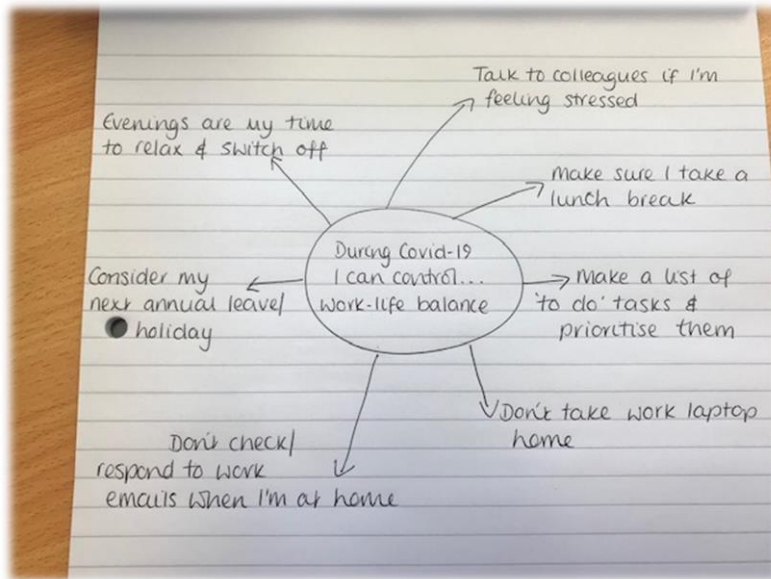 During Covid-19
I can control...
work-life balance
Talk to colleagues if I'm
feeling stressed
Make sure I take a
lunch break
Make a list of
'to do' tasks &
prioritise them
Don't take work laptop
home
Don't check/
respond to work
emails when I'm at home
Consider my
next annual leave/
holiday
Evenings are my time
to relax & switch off